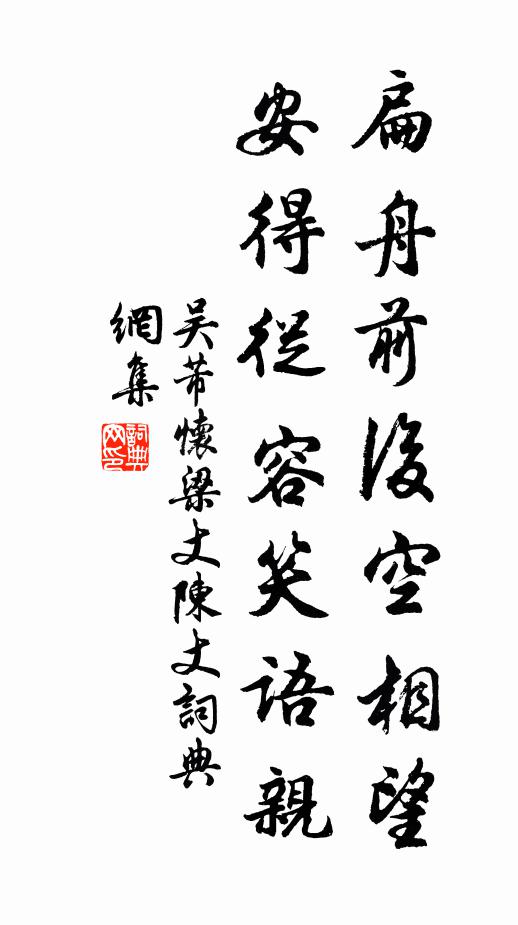 扁舟前後空相望
安得從容笑語親
吳芾懷梁丈陳丈詞典
網集
詞典網印